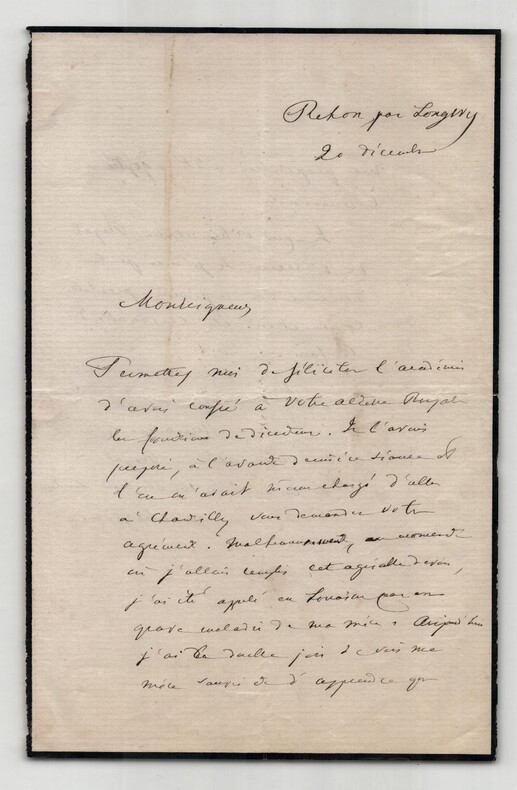 Rehon par Longwy
20 décembre
Monseigneur
Permettez moi de féliciter l'académie
d'avoir confié à Votre Altesse Royale
les fonctions de directeur. Je l'avais
proposé, à l'avant dernière séance et
l'on m'avait même chargé d'aller
à Chantilly vous demander votre
agrément. Malheureusement, au moment
où j'allais remplir cet agréable devoir,
j'ai été appelé en Lorraine par une
grave maladie de ma mère. Aujourd'hui
j'ai la double joie de voir ma
mère sauvée et d'apprendre que